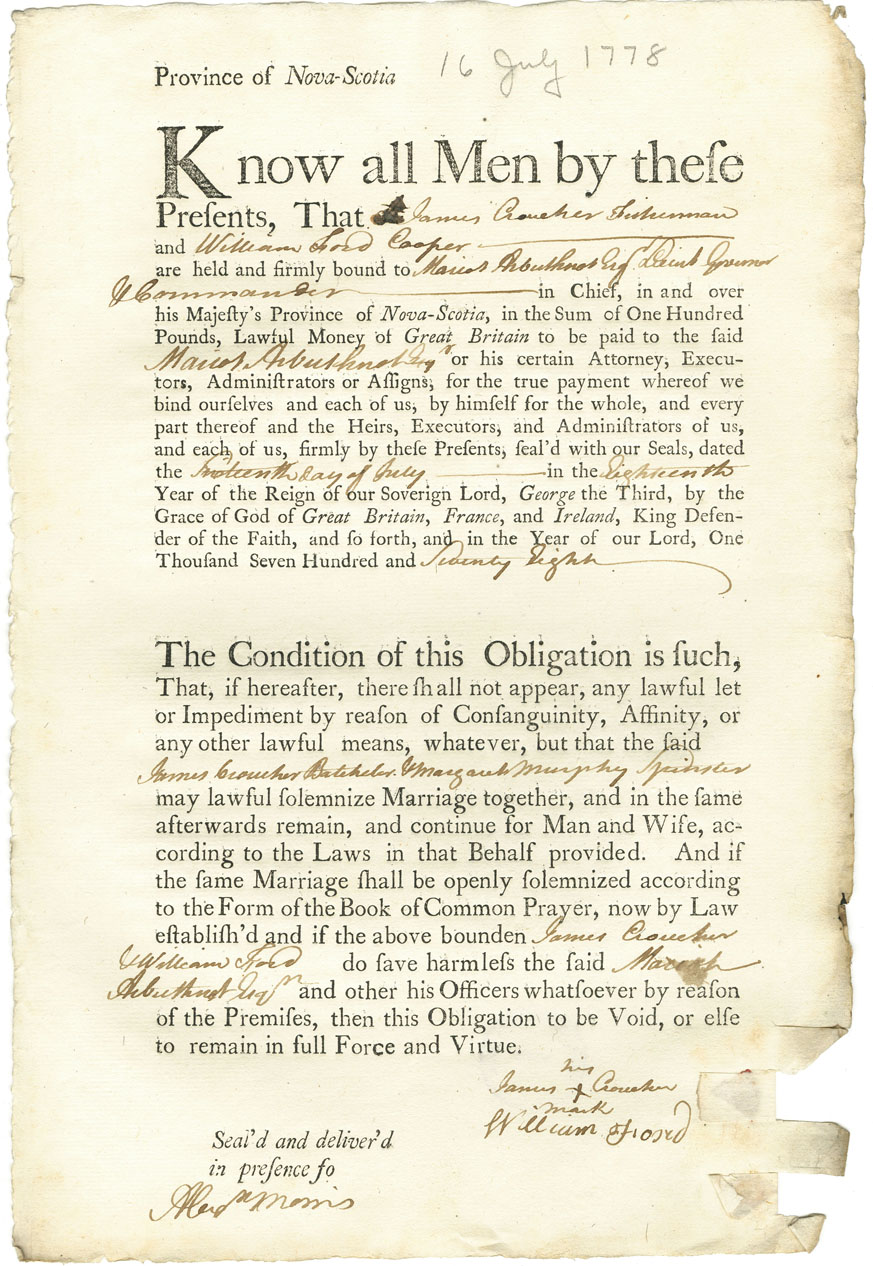 16 July 1778
Province of Nova-Scotia
Know all Men by theſe
Preſents, That James Croucher Fisherman
and William Ford Cooper
are held and firmly bound to Mariot Arbuthnot Esqr. Lieut Governor
& Commander in Chief, in and over
his Majeſty's Province of Nova-Scotia, in the Sum of One Hundred
Pounds, Lawful Money of Great Britain to be paid to the ſaid
Mariot Arbuthnot Esqr or his certain Attorney, Execu-
tors, Adminiſtrators or Aſſigns, for the true payment whereof we
bind ourſelves and each of us, by himſelf for the whole, and every
part thereof and the Heirs, Executors, and Adminiſtrators of us,
and each of us, firmly by theſe Preſents, ſeal'd with our Seals, dated
the Sixteenth day of July in the Eighteenth
Year of the Reign of our Soverign Lord, George the Third, by the
Grace of God of Great Britain, France, and Ireland, King Defen-
der of the Faith, and ſo forth, and in the Year of our Lord, One
Thouſand Seven Hundred and Seventy Eight
The Condition of this Obligation is ſuch,
That, if hereafter, there ſhall not appear, any lawful let
or Impediment by reaſon of Conſanguinity, Affinity, or
any other lawful means, whatever, but that the ſaid
James Croucher Batcheler & Margaret Murphy Spinster
may lawful ſolemnize Marriage together, and in the ſame
afterwards remain, and continue for Man and Wife, ac-
cording to the Laws in that Behalf provided. And if
the ſame Marriage ſhall be openly ſolemnized according
to the Form of the Book of Common Prayer, now by Law
eſtabliſh'd and if the above bounden James Croucher
& William Ford do ſave harmleſs the ſaid Mariot
Arbuthnot Esqr and other his Officers whatſoever by reaſon
of the Premiſes, then this Obligation to be Void, or elſe
to remain in full Force and Virtue.
his
James + Croucher
mark
William Ford
Seal'd and deliver'd
in preſence fo
Morris